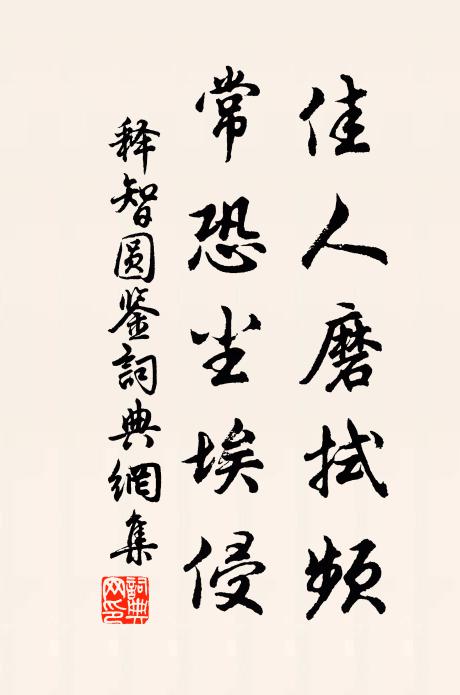 佳人磨拭頻
常恐尘埃侵
释智圆鉴詞典網集
詞典网印